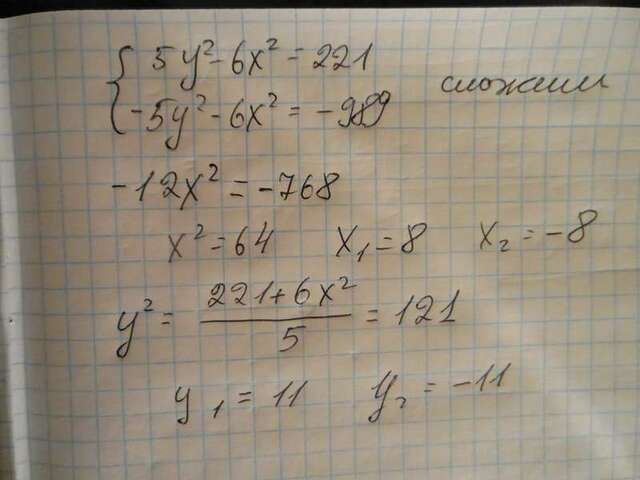 5y² - 6x² = 221
-5y² - 6x² = -989 сложили
-12x² = -768
x² = 64 x₁ = 8 x₂ = -8
y² = (221 + 6x²)/5 = 121
y₁ = 11 y₂ = -11